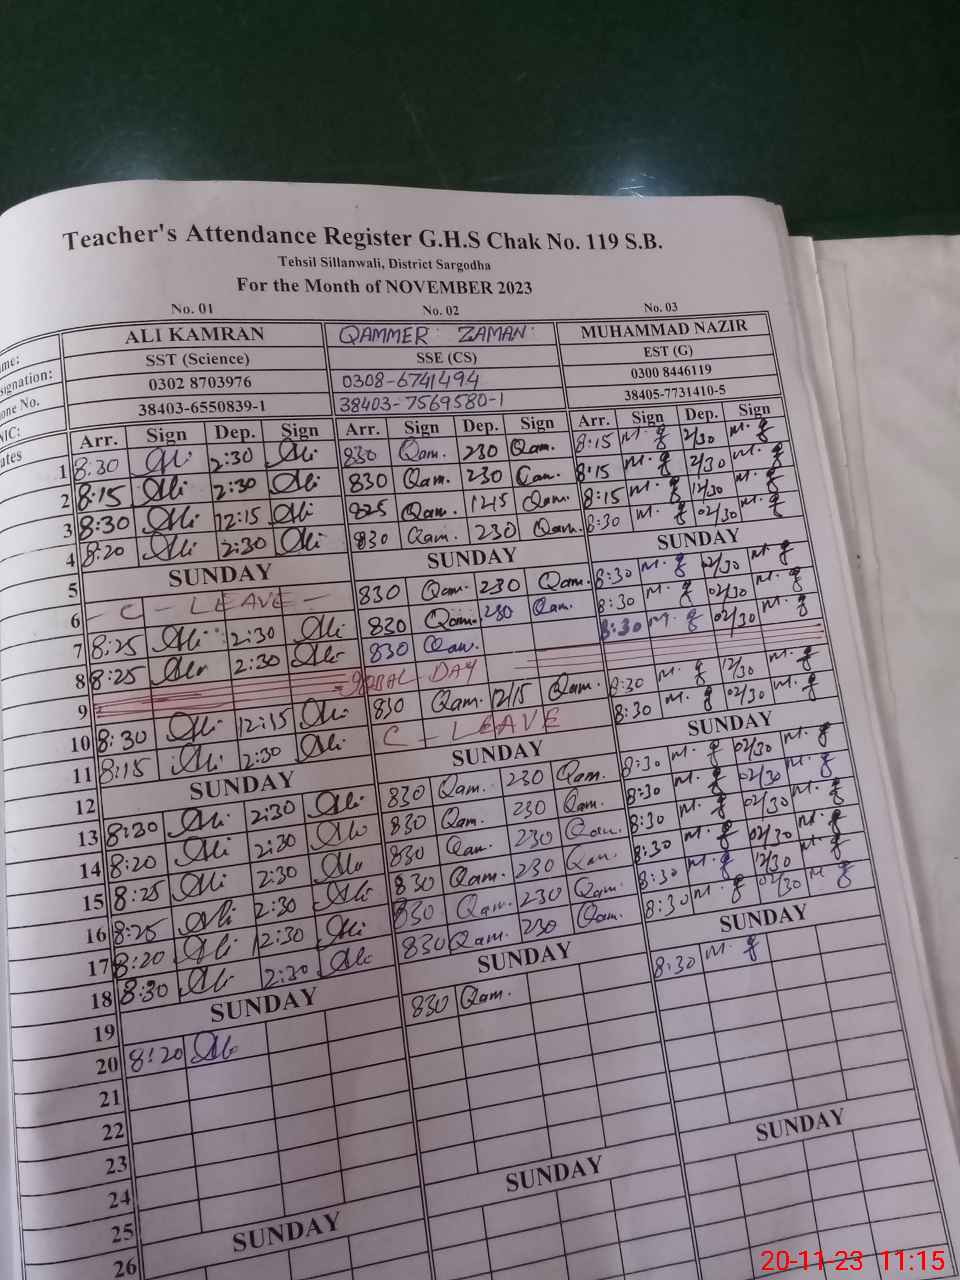 Teacher's Attendance Register G.H.S Chak No. 119 S.B.
Tehsil Sillanwali, District Sargodha
For the Month of NOVEMBER 2023
No. 01 No. 02 No. 03
ame: ALI KAMRAN QAMMER: ZAMAN: MUHAMMAD NAZIR
signation: SST (Science) SSE (CS) EST (G)
one No. 0302 8703976 0308-6741494 0300 8446119
NIC: 38403-6550839-1 38403-7569580-1 38405-7731410-5
ates Arr. Sign Dep. Sign Arr. Sign Dep. Sign Arr. Sign Dep. Sign
1 8:30 Ali 2:30 Ali 830 Qam. 230 Qam. 8:15 M. 2/30 M.
2 8:15 Ali 2:30 Ali 830 Qam. 230 Qam. 8:15 M. 2/30 M.
3 8:30 Ali 12:15 Ali 825 Qam. 1215 Qam. 8:15 M. 12/30 M.
4 8:20 Ali 2:30 Ali 830 Qam. 230 Qam. 8:30 M. 02/30 M.
5 SUNDAY SUNDAY SUNDAY
6 C - LEAVE - 830 Qam. 230 Qam. 8:30 M. 02/30 M.
7 8:25 Ali 2:30 Ali 830 Qam. 230 Qam. 8:30 M. 02/30 M.
8 8:25 Ali 2:30 Ali 830 Qam. 8:30 M. 02/30 M.
9 DAY
10 8:30 Ali 12:15 Ali 830 Qam. 12/15 Qam. 8:30 M. 12/30 M.
11 8:15 Ali 2:30 Ali C - LEAVE 8:30 M. 02/30 M.
12 SUNDAY SUNDAY SUNDAY
13 8:30 Ali 2:30 Ali 830 Qam. 230 Qam. 8:30 M. 02/30 M.
14 8:20 Ali 2:30 Ali 830 Qam. 230 Qam. 8:30 M. 02/30 M.
15 8:25 Ali 2:30 Ali 830 Qam. 230 Qam. 8:30 M. 02/30 M.
16 8:25 Ali 2:30 Ali 830 Qam. 230 Qam. 8:30 M. 02/30 M.
17 8:20 Ali 12:30 Ali 830 Qam. 230 Qam. 8:30 M. 12/30 M.
18 8:30 Ali 2:30 Ali 830 Qam. 230 Qam. 8:30 M. 02/30 M.
19 SUNDAY SUNDAY SUNDAY
20 8:20 Ali 830 Qam. 8:30 M.
21
22
23
24
25
26 SUNDAY SUNDAY SUNDAY
20-11-23 11:15